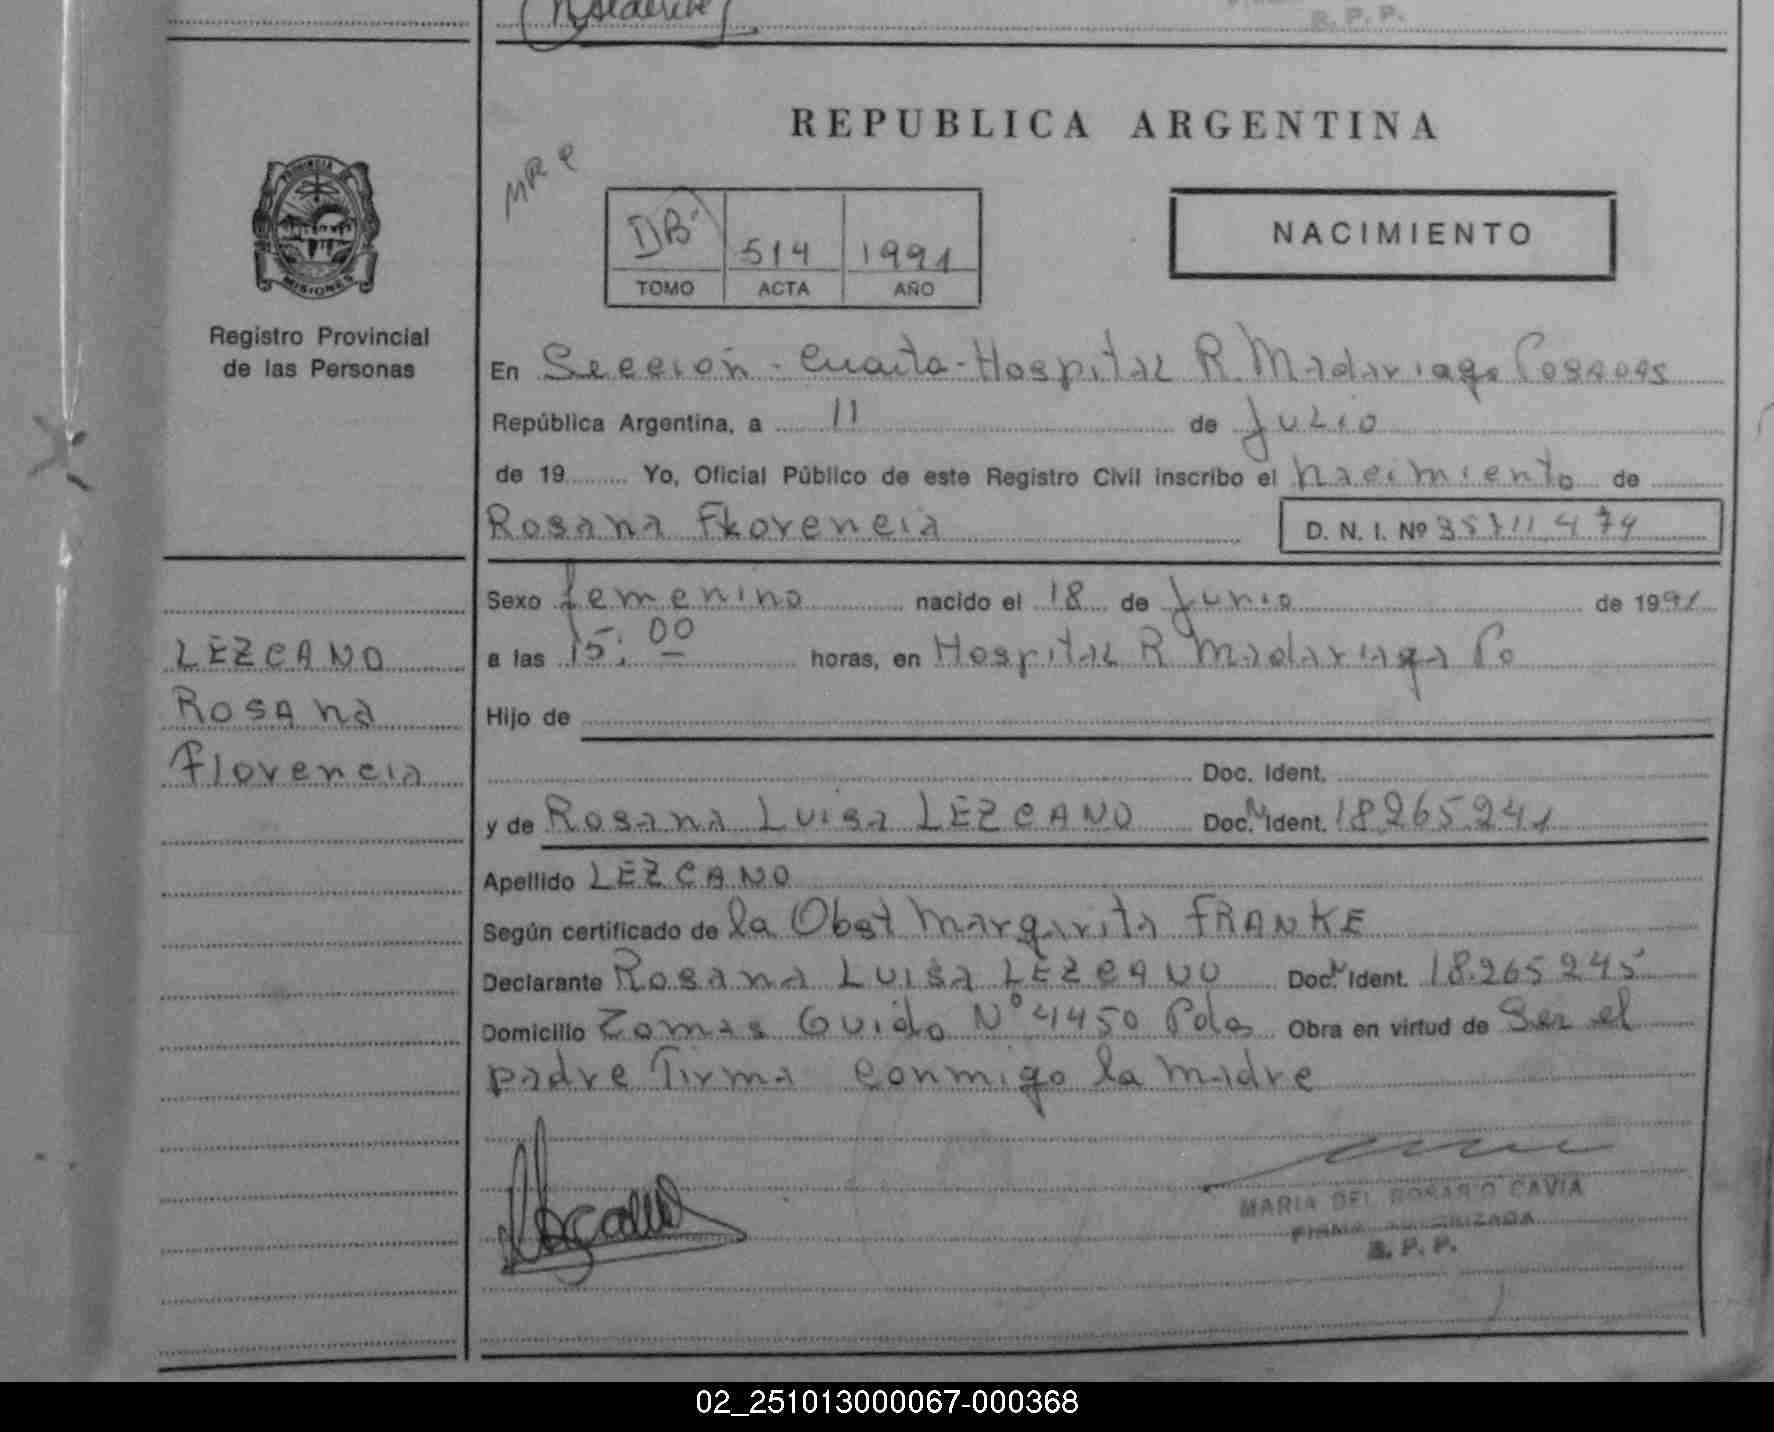 R. P. P.
REPUBLICA ARGENTINA
PROVINCIA DE
MISIONES
Registro Provincial
de las Personas
DB 514 1991
TOMO ACTA AÑO
NACIMIENTO
En Sección - Cuarta - Hospital R. Madariaga Posadas
República Argentina, a 11 de Julio
de 19 Yo, Oficial Público de este Registro Civil inscribo el nacimiento de
Rosana Florencia D. N. I. Nº
Sexo femenino nacido el 18 de Junio de 1991
a las 15:00 horas, en Hospital R Madariaga Po
Hijo de
Doc. Ident.
y de Rosana Luisa LEZCANO Doc. N Ident. 18.265.241
Apellido LEZCANO
Según certificado de la Obst Margarita FRANKE
Declarante Rosana Luisa LEZCANO Doc. N Ident. 18.265 245
Domicilio Tomas Guido Nº 4450 Pdas Obra en virtud de Ser el
padre Firma conmigo la madre
LEZCANO
Rosana
Florencia
MARIA DEL ROSARIO CAVIA
FIRMA AUTORIZADA
R. P. P.
02_251013000067-000368